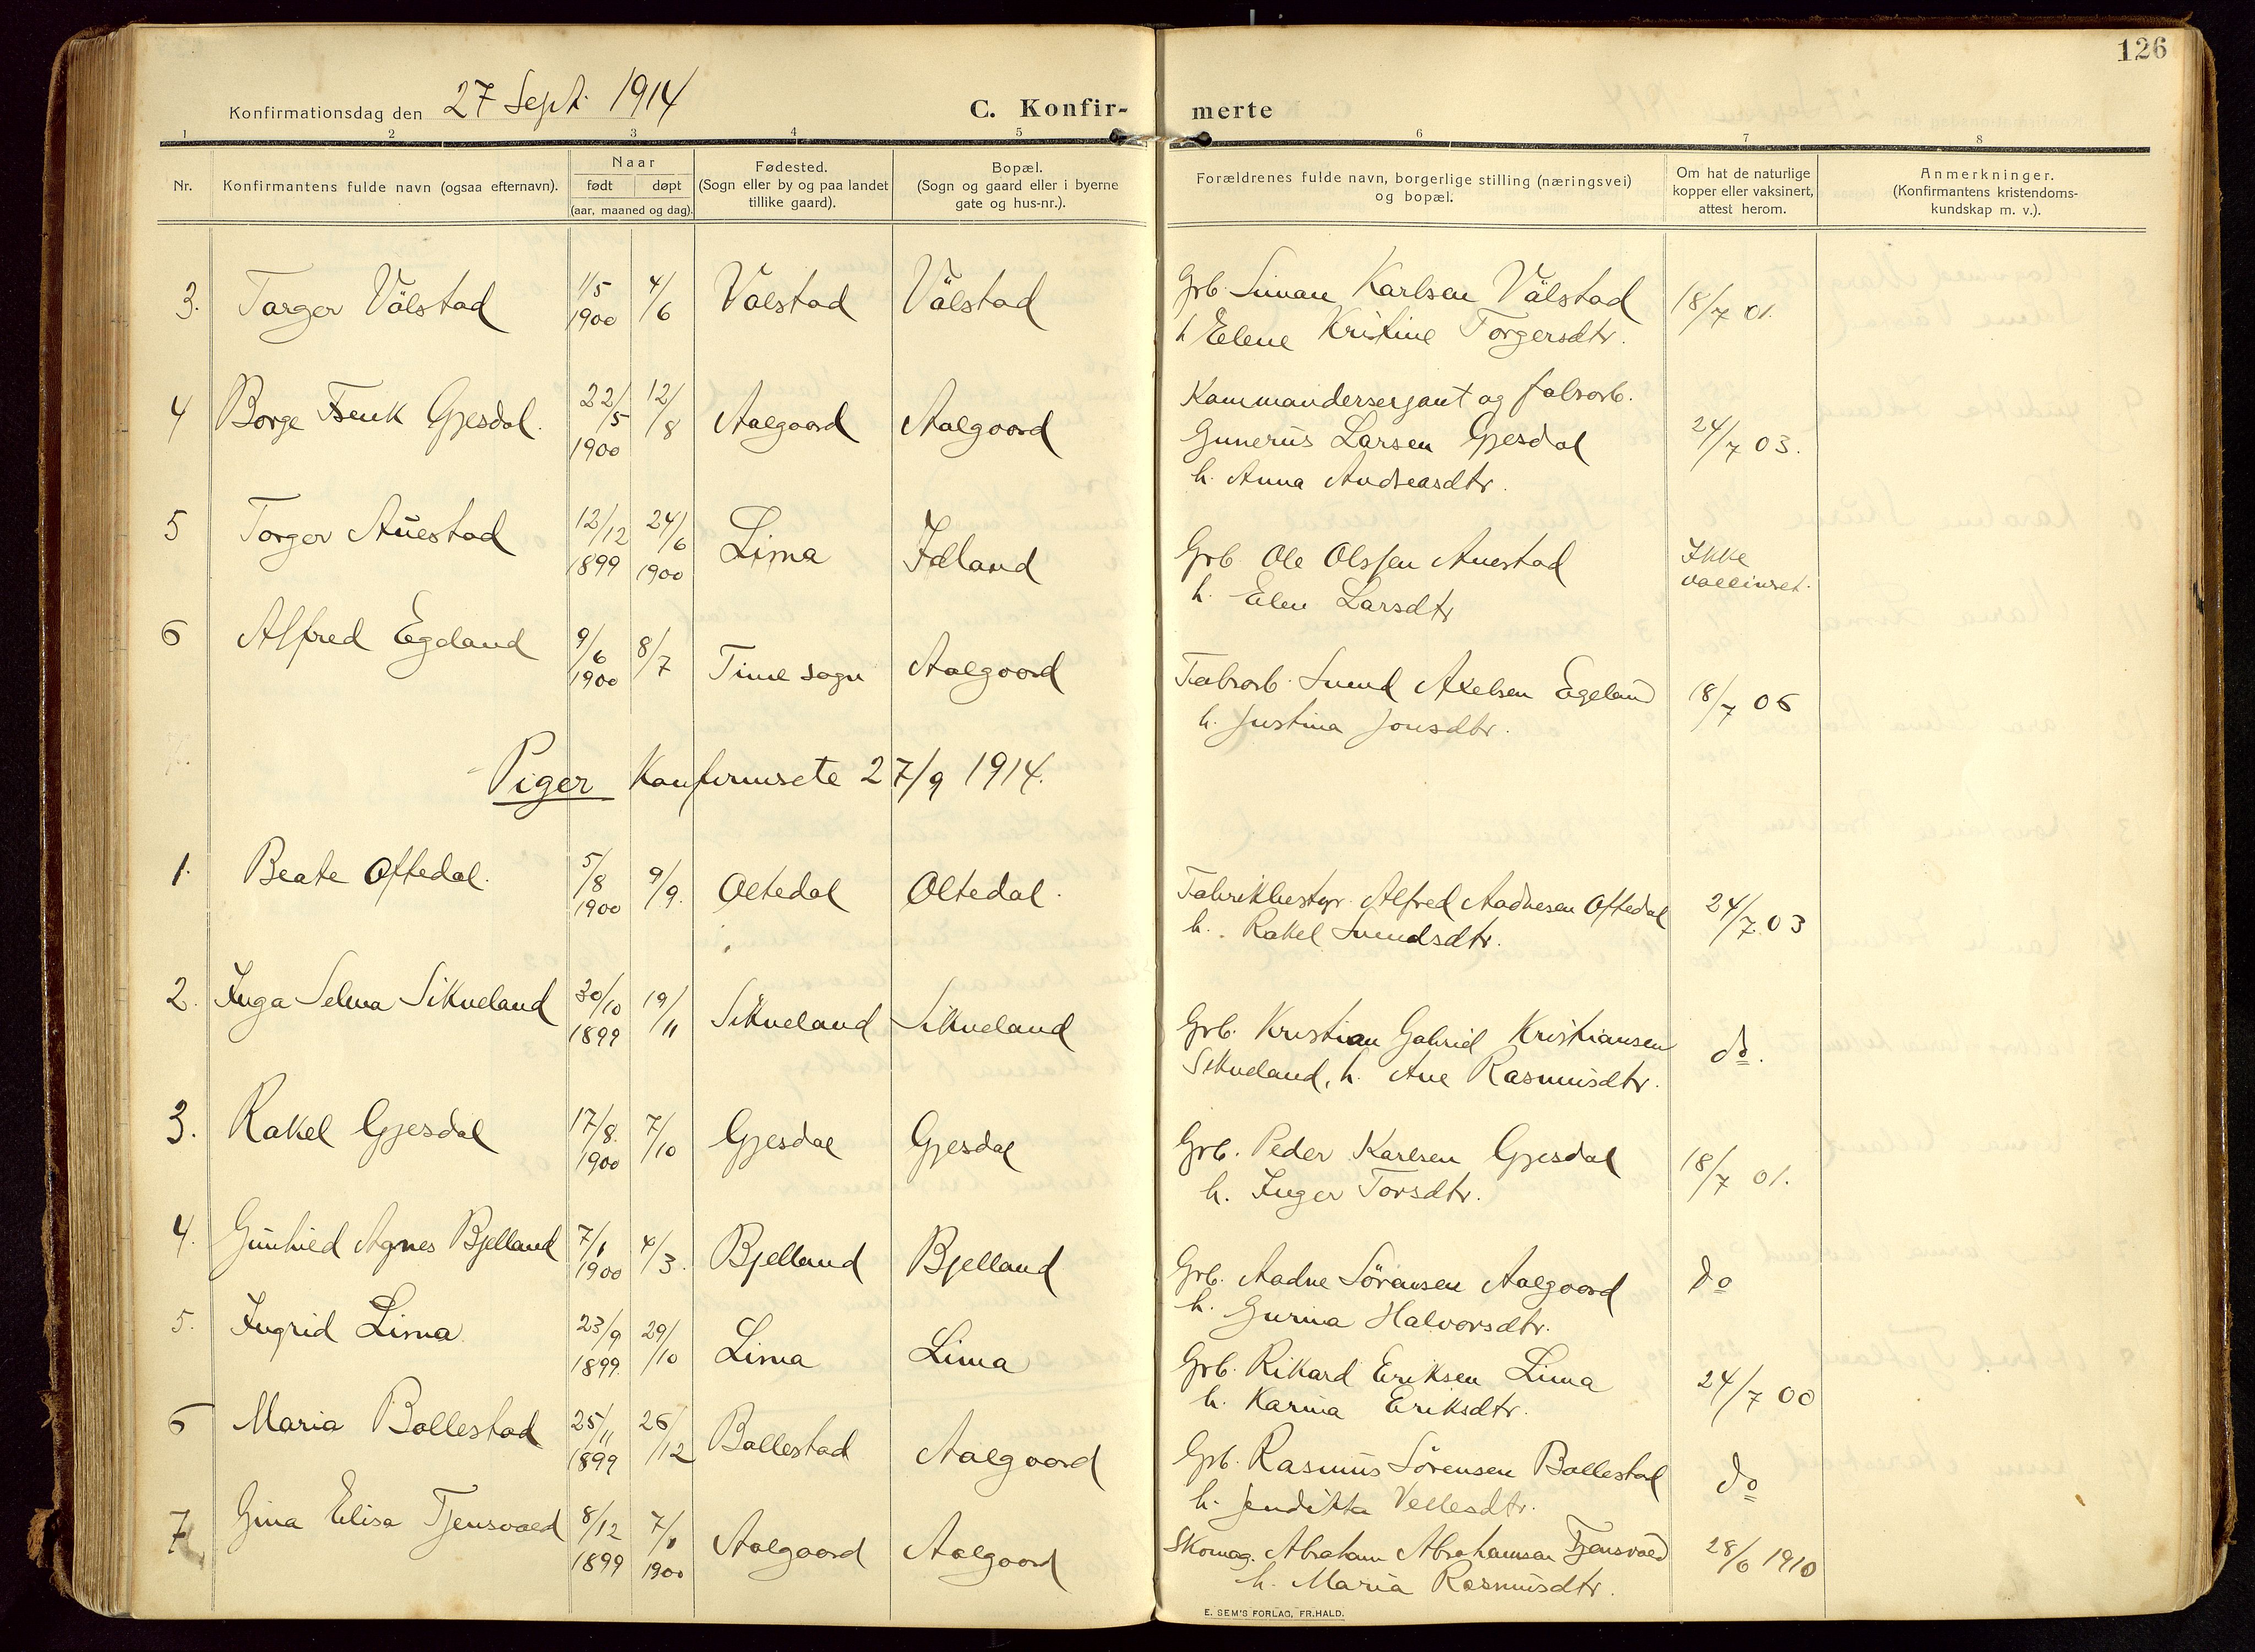 126
Konfirmationsdag den 27 Sept. 1914
C. Konfir-
merte
1 2 3 4 5 6 7 8
Nr.
Konfirmantens fulde navn (ogsaa efternavn).
Naar
født døpt
(aar, maaned og dag).
Fødested.
(Sogn eller by og paa landet
tillike gaard).
Bopæl.
(Sogn og gaard eller i byerne
gate og hus-nr.).
Forældrenes fulde navn, borgerlige stilling (næringsvei)
og bopæl.
Om hat de naturlige
kopper eller vaksinert,
attest herom.
Anmerkninger.
(Konfirmantens kristendoms-
kundskap m. v.).
3. Torger Vålstad 1/5 1900 4/6 Valstad Vålstad
Grb. Siman Karlsen Vålstad 18/7 01.
h Elene Kristine Torgersdtr.
4 Borge Gjesdal. 22/5 1900 12/8 Aalgaard Aalgaard
Kommandersersjant og fabrarb.
Gunerius Larsen Gjesdal 24/7 03.
h. Anna Andreasdtr.
5 Torger Auestad 12/12 1899 24/6 1900 Lima Idland
Grb Ole Olssen Auestad Ikke
h. Elen Larsdtr vaccinert.
6 Alfred Egeland 9/6 1900 8/7 Time sogn Aalgaard
Fabrarb. Svend Axelsen Egeland 18/7 06
h. Justina Jonsdtr.
Piger Konfirmerte 27/9 1914.
1. Beate Oftedal. 5/8 1900 9/9. Oltedal Oltedal.
Fabrikbestyr. Alfred Aadnesen Oftedal 24/7 03
h. Rakel Svendsdtr.
2. Inga Selma Sikveland 30/10 1899 19/11 Sikveland Sikveland
Grb. Kristian Gabriel Kristiansen do.
Sikveland, h. Ane Rasmusdtr.
3. Rakel Gjesdal 17/8. 1900 7/10 Gjesdal Gjesdal
Grb. Peder Karlsen Gjesdal 18/7 01.
h. Inger Torsdtr.
4. Gunhild Agnes Bjelland 7/1 1900 4/3. Bjelland Bjelland
Grb. Aadne Sörensen Aalgaard do
h. Gurina Halvorsdtr.
5. Ingrid Lima 23/9 1899. 29/10 Lima Lima
Grb. Rikard Eriksen Lima 24/7 00
h. Karina Eriksdtr.
6 Maria Bollestad 25/11 1899 26/12 Bollestad Aalgaard
Grb. Rasmus Sörensen Bollestad do
h. Jendikka Vellesdtr.
7 Gina Elisa Tjensvold 8/12 1899 7/1 1900 Aalgaard Aalgaard
Skomag. Abraham Abrahamsen Tjensvold 28/6 1910
h. Maria Rasmusdtr.
E. SEM'S FORLAG, FR.HALD.